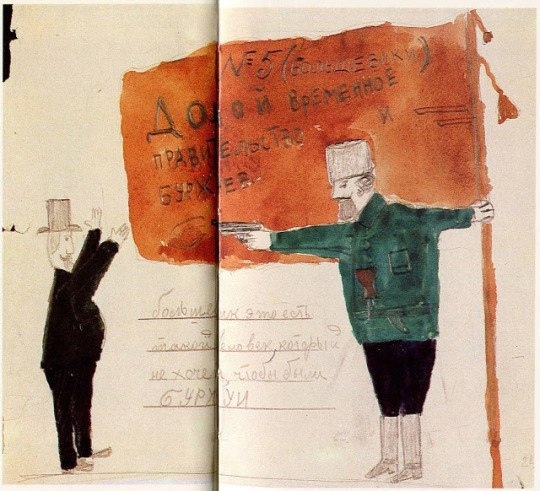 №5 (Большевики)
Долой временное
правительство и
буржуев.
большевик это есть
такой человек, который
не хочет, чтобы были
БУРЖУИ